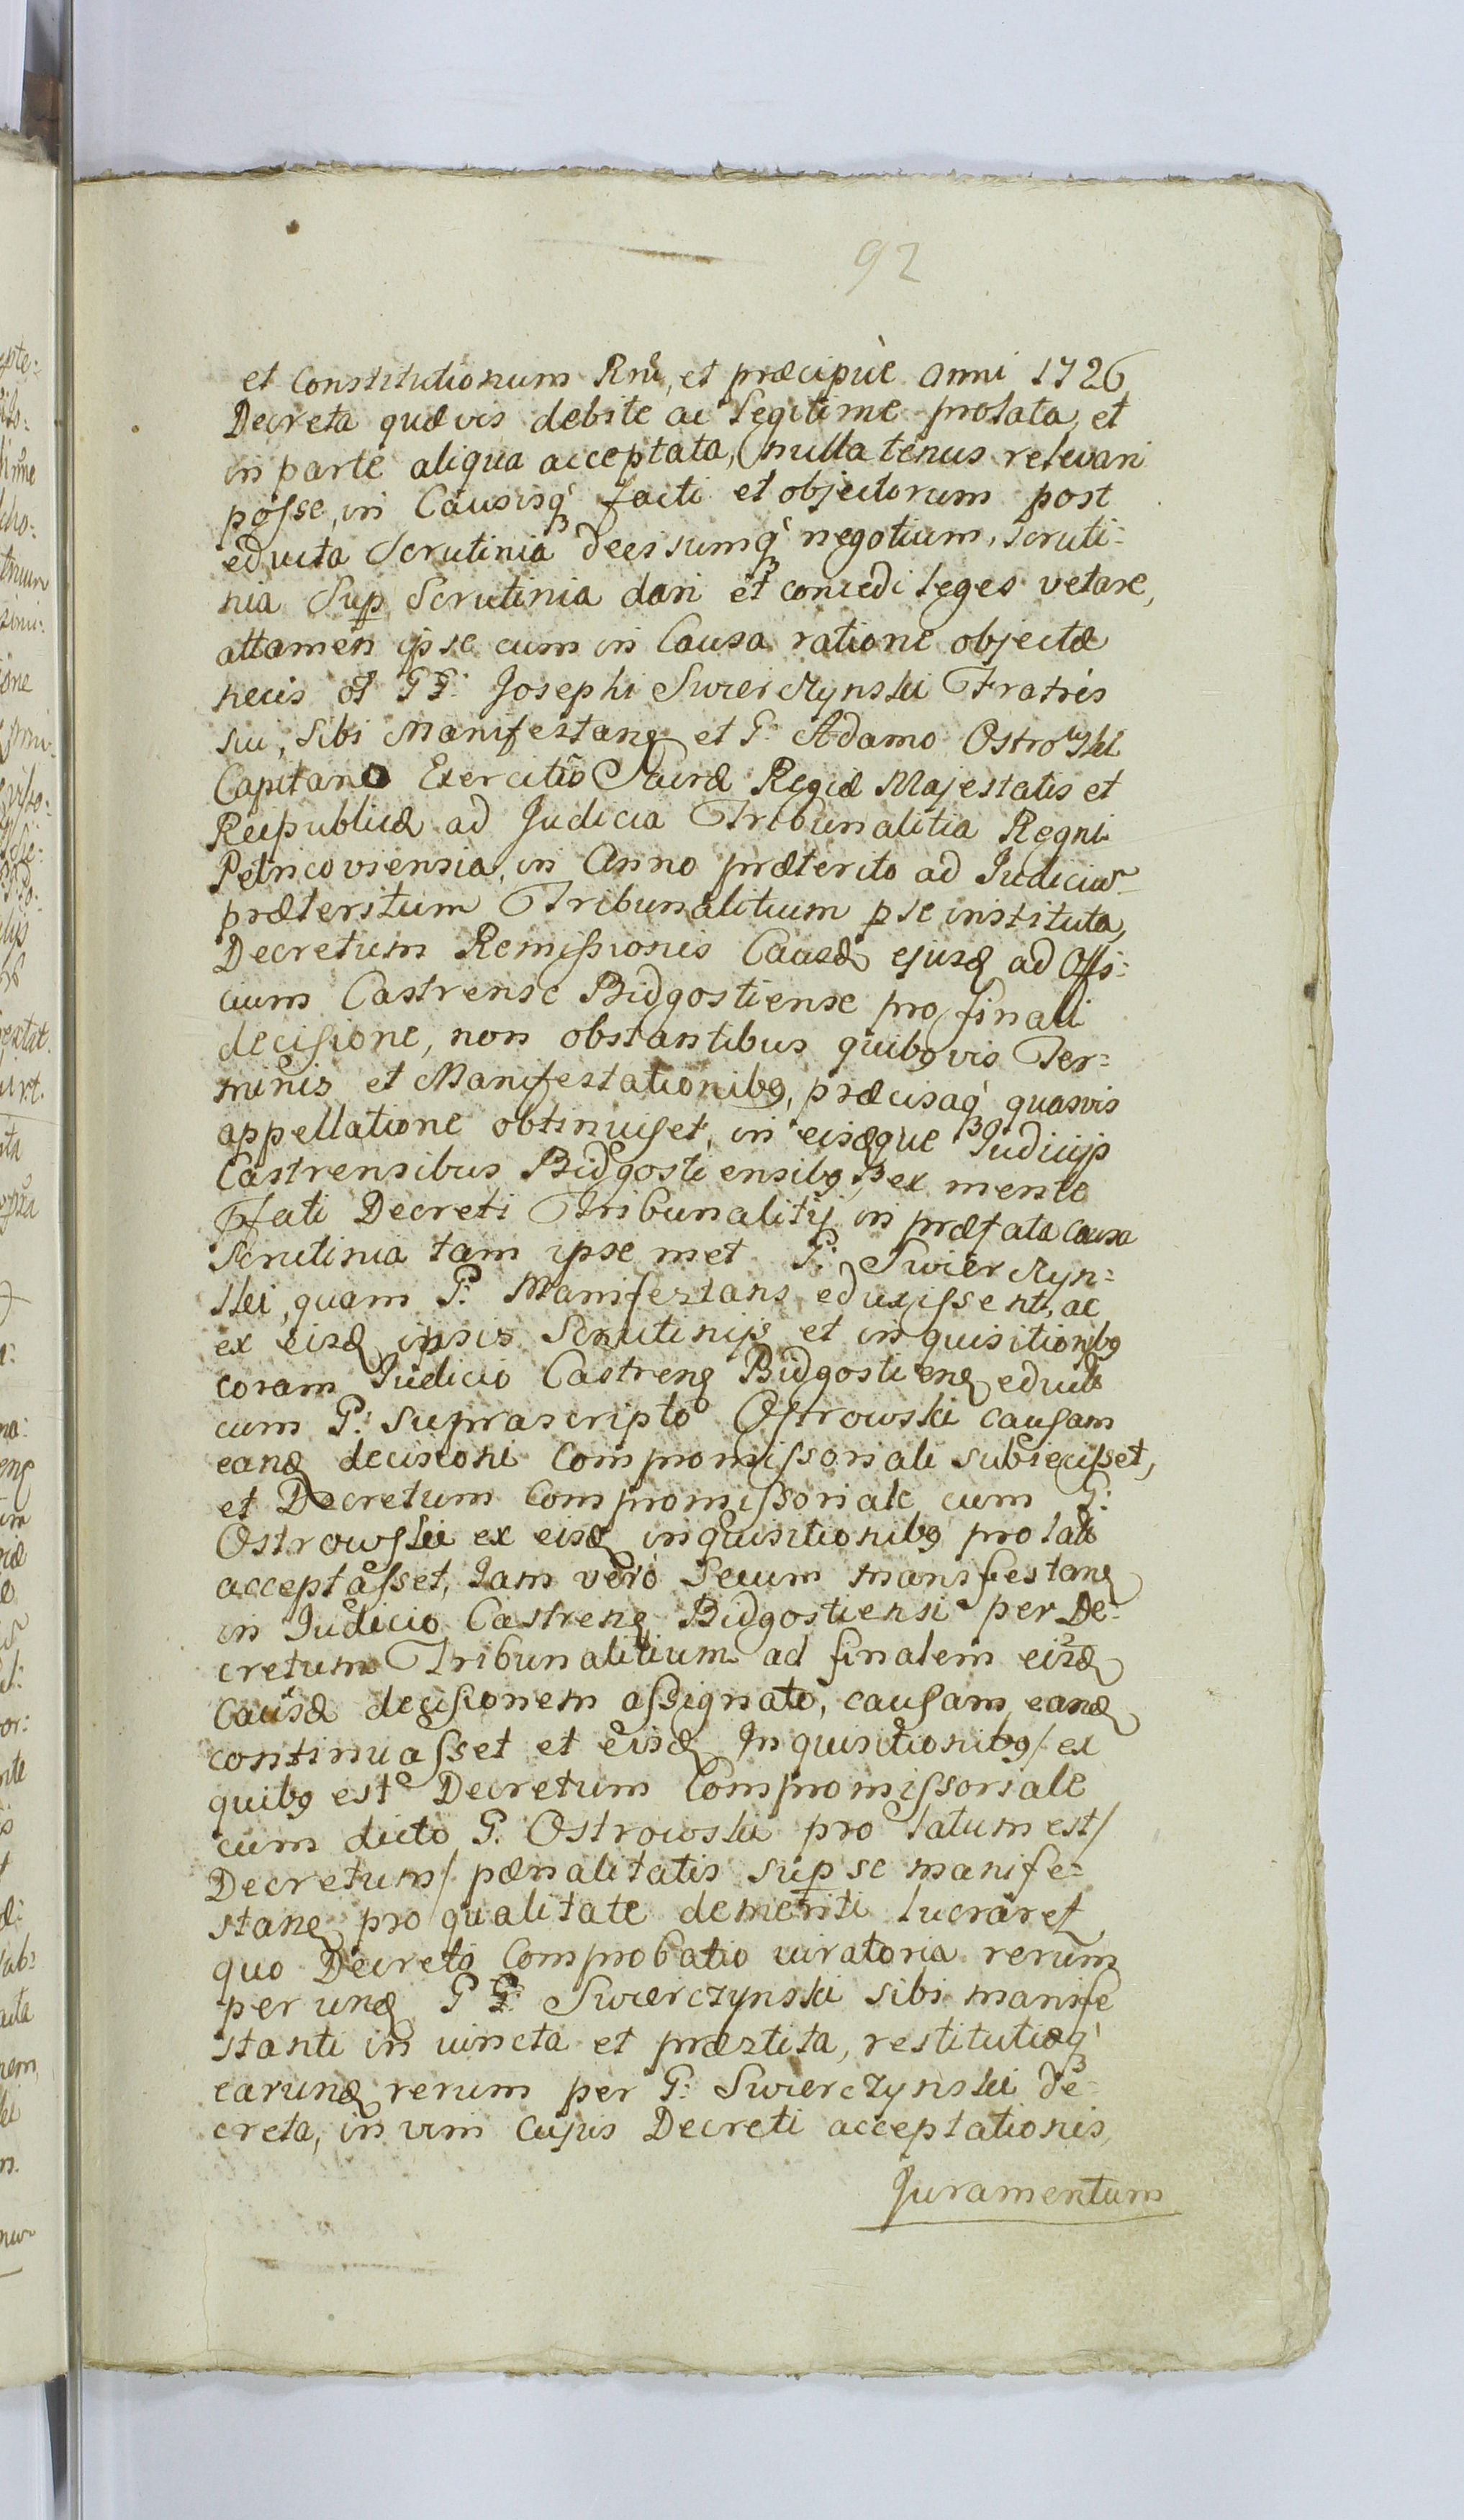 92
et Constitutionum Rni, et præcipùe anni 1726
Decreta quævis debite ac legitime prolata, et
in parte aliqua acceptata, nullatenus relevari
posse, in Causisq facti et objectorum post
educta Scrutinia decisumq negotium, scruti=
nia Sup Scrutinia dari et concedi leges vetare,
attamen ipse cum in Causa ratione objectæ
necis GG: Josephi Swierczynski Fratris
sui, sibi Manifestanę et G: Adamo Ostrowski
Capitano Exercitũ Sacræ Regiæ Majestatis et
Reipublicæ ad Judicia Tribunalitia Regni
Petricoviensia, in Anno præterito ad Judiciũ
præteritum Tribunalitium p se instituta,
Decretum Remissionis Causæ ejusđ ad Offi=
cium Castrense Bidgostiense pro finali
decisione, non obstantibus quibusvis Ter=
minis et Manifestationibꝯ, præcisaq quasvis
appellatione obtinuisset, in eisdeque Judicijs
Castrensibus Bidgostiensibꝯ, ex mente
Pfati Decreti Tribunalitij in præfata causa
Scrutinia tam ipse met G: Swierczyn=
ski, quam G: Manifestans eduxissent, ac
ex eisđ ipsis Scrutinijs et inquisitionibꝯ
coram Judicio Castrenę Bidgostienę educt
cum G: suprascripto Ostrowski causam
eanđ decisioni Compromissoriali subiecisset,
et Decretum Compromissoriale cum G:
Ostrowski ex eisđ inquisitionibꝯ prolat
acceptasset, Jam verò secum manifestanę
in Judicio Castrenę Bidgostiensi per De=
cretum Tribunalitium ad finalem eisđ
Causæ decisionem assignato, causam eanđ
continuasset et eisđ Inquisitionibꝯ / ex
quibꝯ est Decretum Compromissoriale
cum dicto G. Ostrowski prolatum est /
Decretum / pænalitatis sup se manife=
stanę pro qualitate demeriti lucraret
quo Decreto Comprobatio iuratoria rerum
per unđ GG: Swierczynski sibi manife
stanti iniuncta et præstita, restitutioq
earunđ rerum per G: Swierczynski de=
creta, in vim cujus Decreti acceptationis
Juramentum